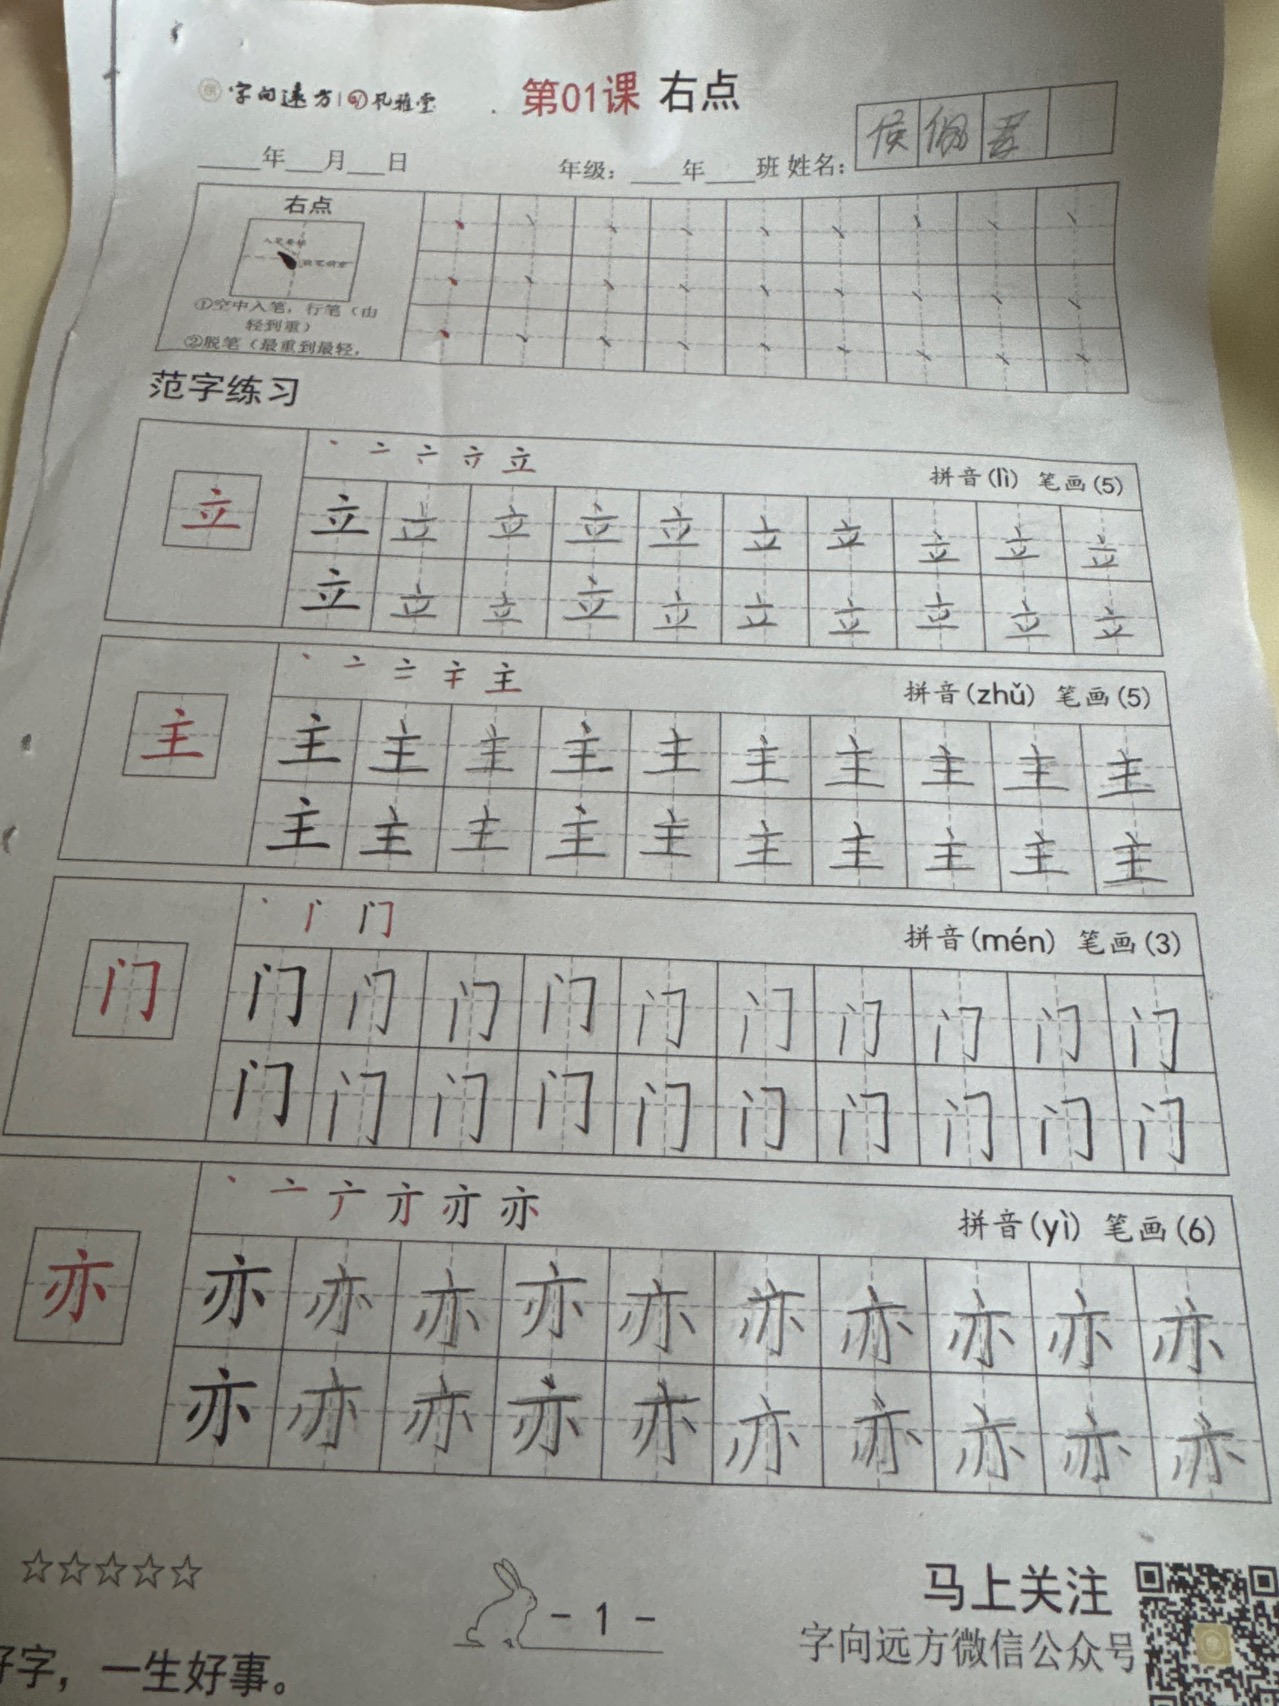 字向远方 风雅堂
第01课 右点
___年___月___日 年级：___年___班 姓名：
右点
①空中入笔，行笔（由
轻到重）
②脱笔（最重到最轻，
范字练习
丶 亠 立
拼音(lì) 笔画(5)
立 立 立 立 立 立 立 立 立 立 立
立 立 立 立 立 立 立 立 立 立
丶 亠 主
拼音(zhǔ) 笔画(5)
主 主 主 主 主 主 主 主 主 主 主
主 主 主 主 主 主 主 主 主 主
丶 门
拼音(mén) 笔画(3)
门 门 门 门 门 门 门 门 门 门 门
门 门 门 门 门 门 门 门 门 门
丶 亠 亦
拼音(yì) 笔画(6)
亦 亦 亦 亦 亦 亦 亦 亦 亦 亦 亦
亦 亦 亦 亦 亦 亦 亦 亦 亦 亦
☆☆☆☆☆
- 1 -
马上关注
字向远方微信公众号
好字，一生好事。